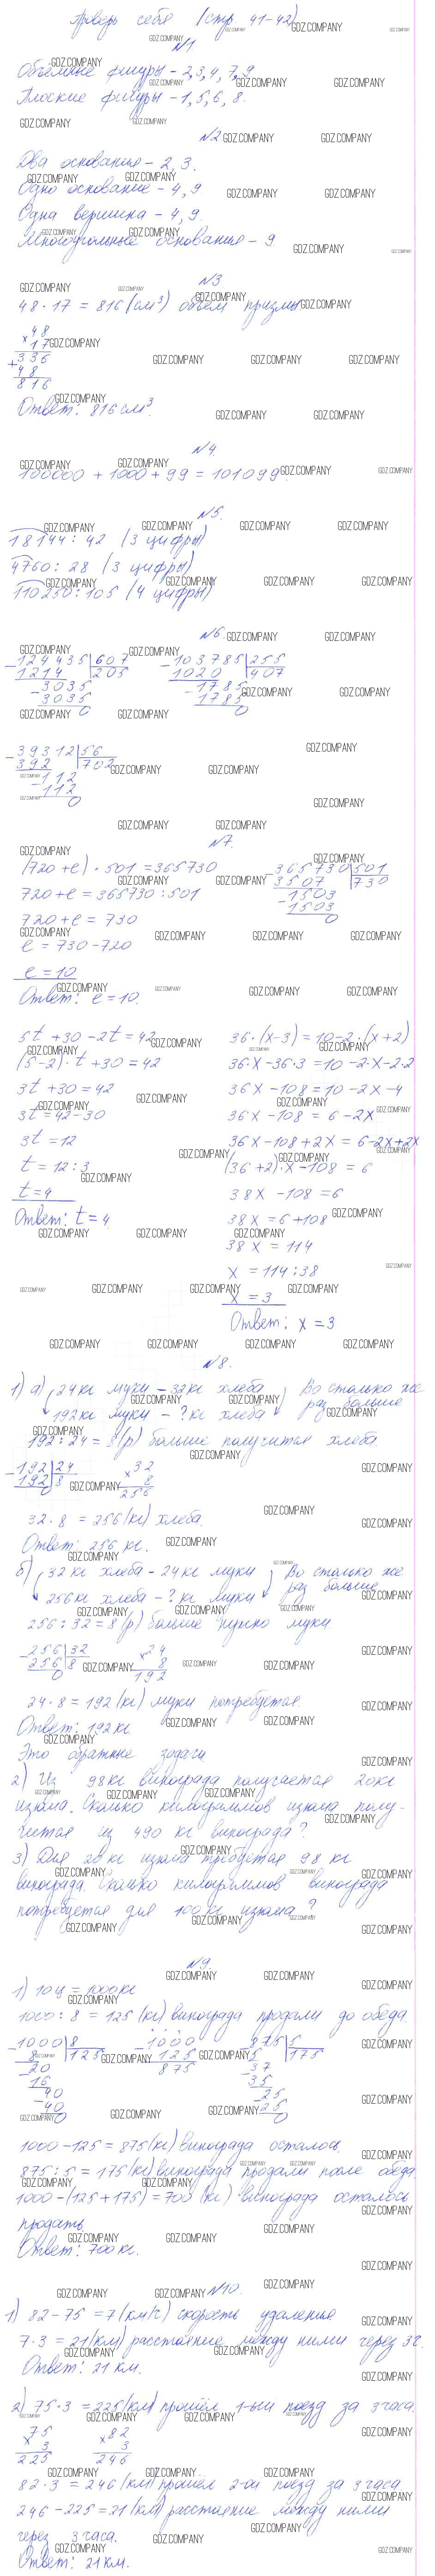 Проверь себя (стр 41-42)
№1
Объемные фигуры - 2,3,4,7,9
Плоские фигуры - 1,5,6,8.
№2
Два основание - 2,3.
Одно основание - 4,9
Одна вершина - 4,9.
Многоугольные основание - 9
№3
48·17 = 816 (см³) объем призмы
×48
17
+336
48
816
Ответ: 816 см³.
№4.
100000 + 1000 + 99 = 101099.
№5.
18144 : 42 (3 цифры)
4760 : 28 (3 цифры)
110250 : 105 (4 цифры)
№6.
-124435|607 -103785|255
1214 |205 1020 |407
-3035 -1785
3035 1785
0 0
-39312|56
392 |702
-112
112
0
№7.
(720+e)·501=365730 -365730|501
720+e=365730:501 3507 |730
720+e=730 -1503
e=730-720 1503
e=10 0
Ответ: e=10.
5t+30-2t=42 36·(x-3)=10-2·(x+2)
(5-2)·t+30=42 36·x-36·3=10-2·x-2·2
3t+30=42 36x-108=10-2x-4
3t=42-30 36x-108=6-2x
3t=12 36x-108+2x=6-2x+2x
t=12:3 (36+2)·x-108=6
t=4 38x-108=6
Ответ: t=4. 38x=6+108
38x=114
x=114:38
x=3
Ответ: x=3
№8.
1) а) 24кг муки - 32кг хлеба Во столько же
192кг муки - ? кг хлеба раз больше
192:24=8(р) больше получится хлеба
-192|24 ×32
192|8 8
0 256
32·8=256(кг) хлеба.
Ответ: 256 кг.
б) 32кг хлеба - 24кг муки Во столько же
256кг хлеба - ? кг муки раз больше
256:32=8(р) больше нужно муки
-256|32 ×24
256|8 8
0 192
24·8=192(кг) муки потребуется
Ответ: 192кг
Это обратные задачи
2) Из 98кг винограда получается 20кг
изюма. Сколько килограммов изюма полу-
чится из 490 кг винограда?
3) Для 20 кг изюма требуется 98 кг
винограда. Сколько килограммов винограда
потребуется для 100кг изюма?
№9.
1) 10ц=1000кг
1000:8=125(кг) винограда продали до обеда.
-1000|8 -1000 -875|5
8 |125 125 5 |175
-20 875 -37
16 35
-40 -25
40 25
0 0
1000-125=875(кг) винограда осталось
875:5=175(кг) винограда продали после обеда
1000-(125+175)=700(кг) винограда осталось
продать.
Ответ: 700кг.
№10.
1) 82-75=7(км/ч) скорость удаления
7·3=21(км) расстояние между ними через 3ч.
Ответ: 21 км.
2) 75·3=225(км) прошёл 1-ый поезд за 3 часа.
×75 ×82
3 3
225 246
82·3=246(км) прошёл 2-ой поезд за 3 часа.
246-225=21(км) расстояние между ними
через 3 часа.
Ответ: 21км.